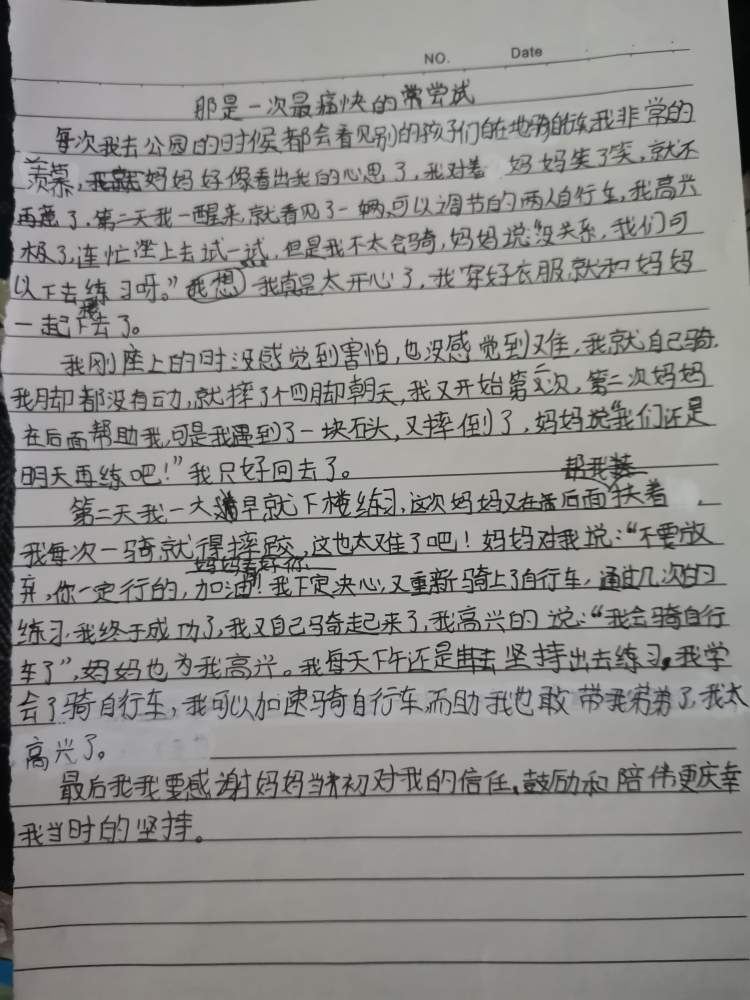 NO. Date
那是一次最痛快的常尝试
每次我去公园的时候都会看见别的孩子们自在地骑自行车我非常的
羡慕,妈妈好像看出我的心思了,我对着 妈妈笑了笑,就不
再想了,第二天我一醒来,就看见了一辆,可以调节的两人自行车,我高兴
极了,连忙坐上去试一试,但是我不太会骑,妈妈说:“没关系,我们可
以下去练习呀。”我想 我真是太开心了,我穿好衣服就和妈妈
一起下去了。
我刚座上的时没感觉到害怕,也没感觉到难,我就自己骑,
我脚都没有动,就摔了个四脚朝天,我又开始第二次,第二次妈妈
在后面帮助我,可是我遇到了一块石头,又摔倒了,妈妈说“我们还是
明天再练吧!”我只好回去了。
第二天我一大清早就下楼练习,这次妈妈又在后面扶着
我每次一骑就得摔跤,这也太难了吧!妈妈对我说:“不要放
弃,你一定行的,加油!妈妈看好你 我下定决心,又重新骑上了自行车,通过几次的
练习,我终于成功了,我又自己骑起来了,我高兴的说:“我会骑自行
车了”,妈妈也为我高兴。我每天下午还是坚持出去练习,我学
会了骑自行车,我可以加速骑自行车,而助我也敢带我弟弟了,我太
高兴了。
最后我我要感谢妈妈当初对我的信任,鼓励和陪伟更庆幸
我当时的坚持。